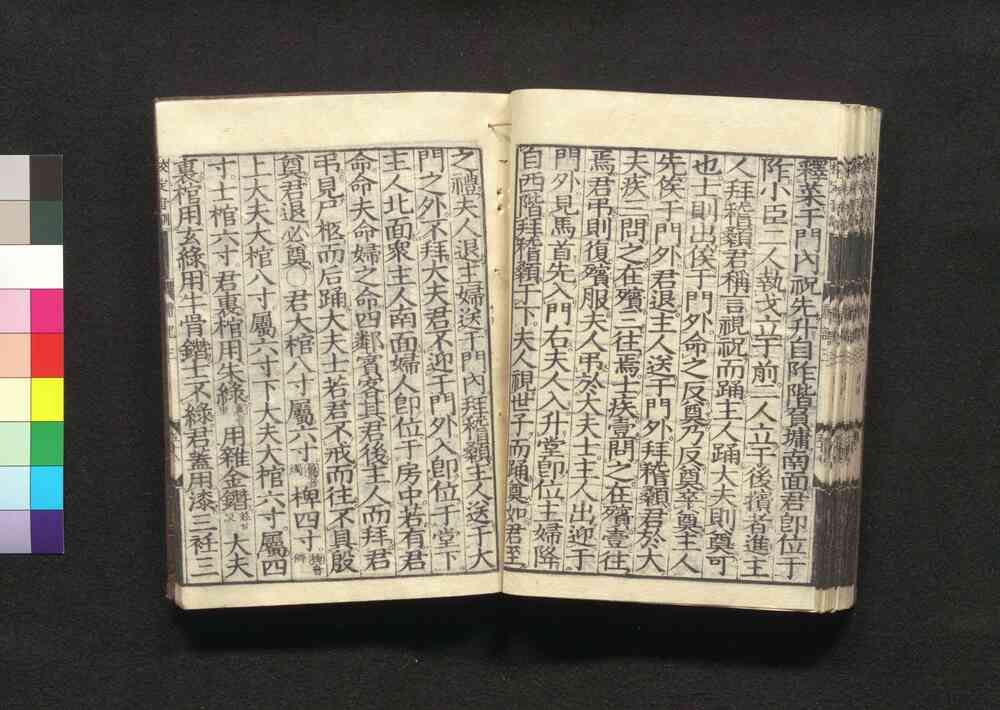 釋菜于門內祝先升自阼階負墉南面君即位于
阼小臣二人執戈立于前二人立于後擯者進主
人拜稽顙君稱言視祝而踊主人踊大夫則奠可
也士則出俟于門外命之反奠乃反奠卒奠主人
先俟于門外君退主人送于門外拜稽顙君於大
夫疾三問之在殯三往焉士疾壹問之在殯壹往
焉君弔則復殯服夫人弔於大夫士主人出迎于
門外見馬首先入門右夫人入升堂即位主婦降
自西階拜稽顙于下夫人視世子而踊奠如君至
之禮夫人退主婦送于門內拜稽顙主人送于大
門之外不拜大夫君不迎于門外入即位于堂下
主人北面眾主人南面婦人即位于房中若有君
命命夫命婦之命四鄰賓客其君後主人而拜君
弔見尸柩而后踊大夫士若君不戒而往不具殷
奠君退必奠○君大棺八寸屬六寸椑四寸
上大夫大棺八寸屬六寸下大夫大棺六寸屬四
寸士棺六寸君裏棺用朱綠用雜金鐕大夫
裏棺用玄綠用牛骨鐕士不綠君蓋用漆三衽三